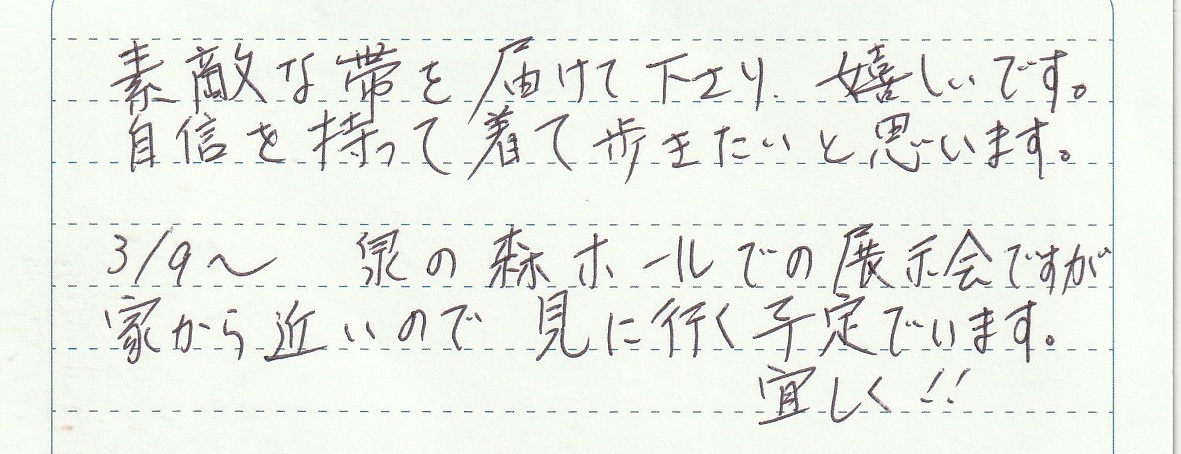 素敵な帯を届けて下さり、嬉しいです。
自信を持って着て歩きたいと思います。
3/9〜 泉の森ホールでの展示会ですが
家から近いので見に行く予定でいます。
宜しく!!